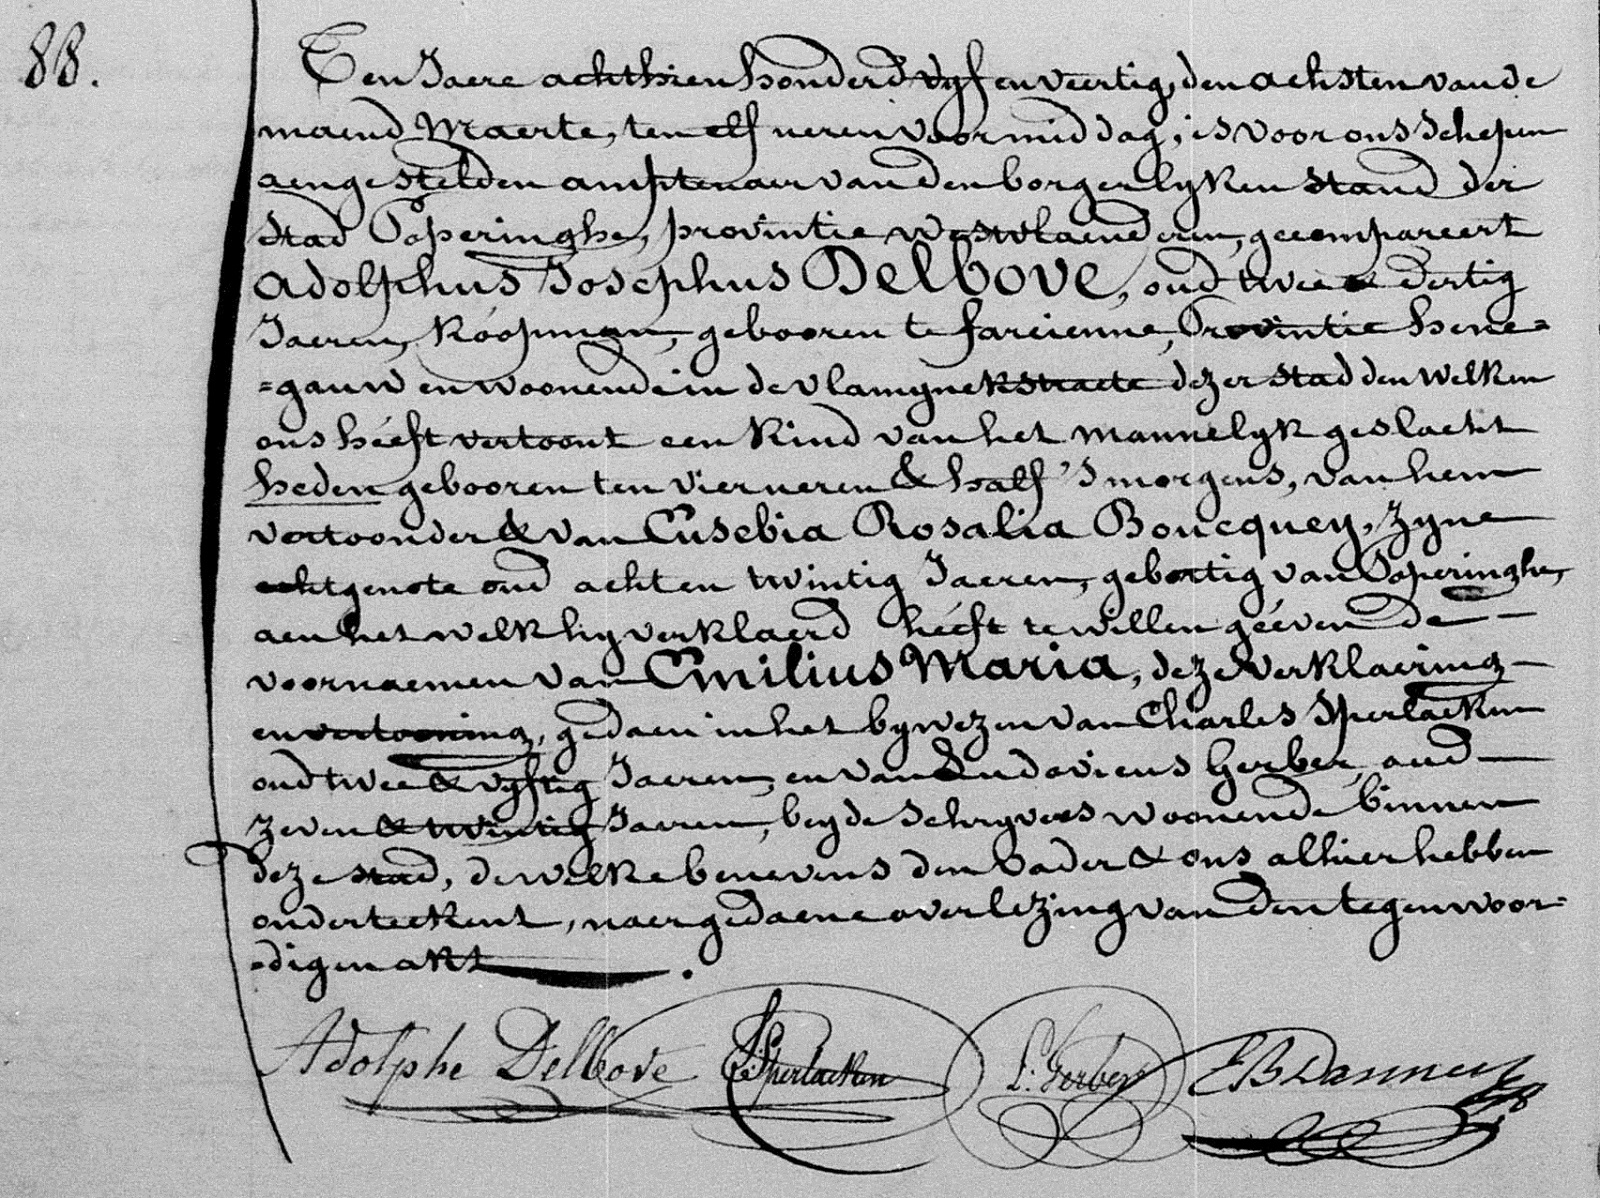 88.
Ten Jaere achthien honderd vyf en veertig, den achsten van de
maend Maerte, ten elf ueren voormiddag, is voor ons schepen
aengestelden amptenaer van den borgerlyken stand der
stad Poperinghe, provintie Westvlaenderen, gecompareert
Adolphus Josephus Delbove, oud twee & dertig
Jaeren, Koopman, gebooren te farcienne, Provintie hene=
=gauw en woonende in de vlamynckstraete dezer stad den welken
ons heéft vertoont een kind van het mannelyk geslacht
heden gebooren ten vier ueren & half 's morgens, van hem
vertoonder & van Eusebia Rosalia Boucquey, zyne
echtgenote oud acht en twintig Jaeren, gebortig van Poperinghe,
aen het welk hy verklaerd heéft te willen geéven de
voornaemen van Emilius Maria, deze verklaering
en vertooning, gedaen in het bywezen van Charles Sperlaeken
oud twee & vyftig Jaeren, en van Ludovicus Gerber oud
zeven & twintig Jaeren, beyde schryvers woonende binnen
deze stad, de welke benevens den vader & ons alhier hebben
onderteekent, naer gedaene overlezing van den tegenwoor=
=digen akt.
Adolphe Delbove Sperlaeken L. Gerber B Danneu